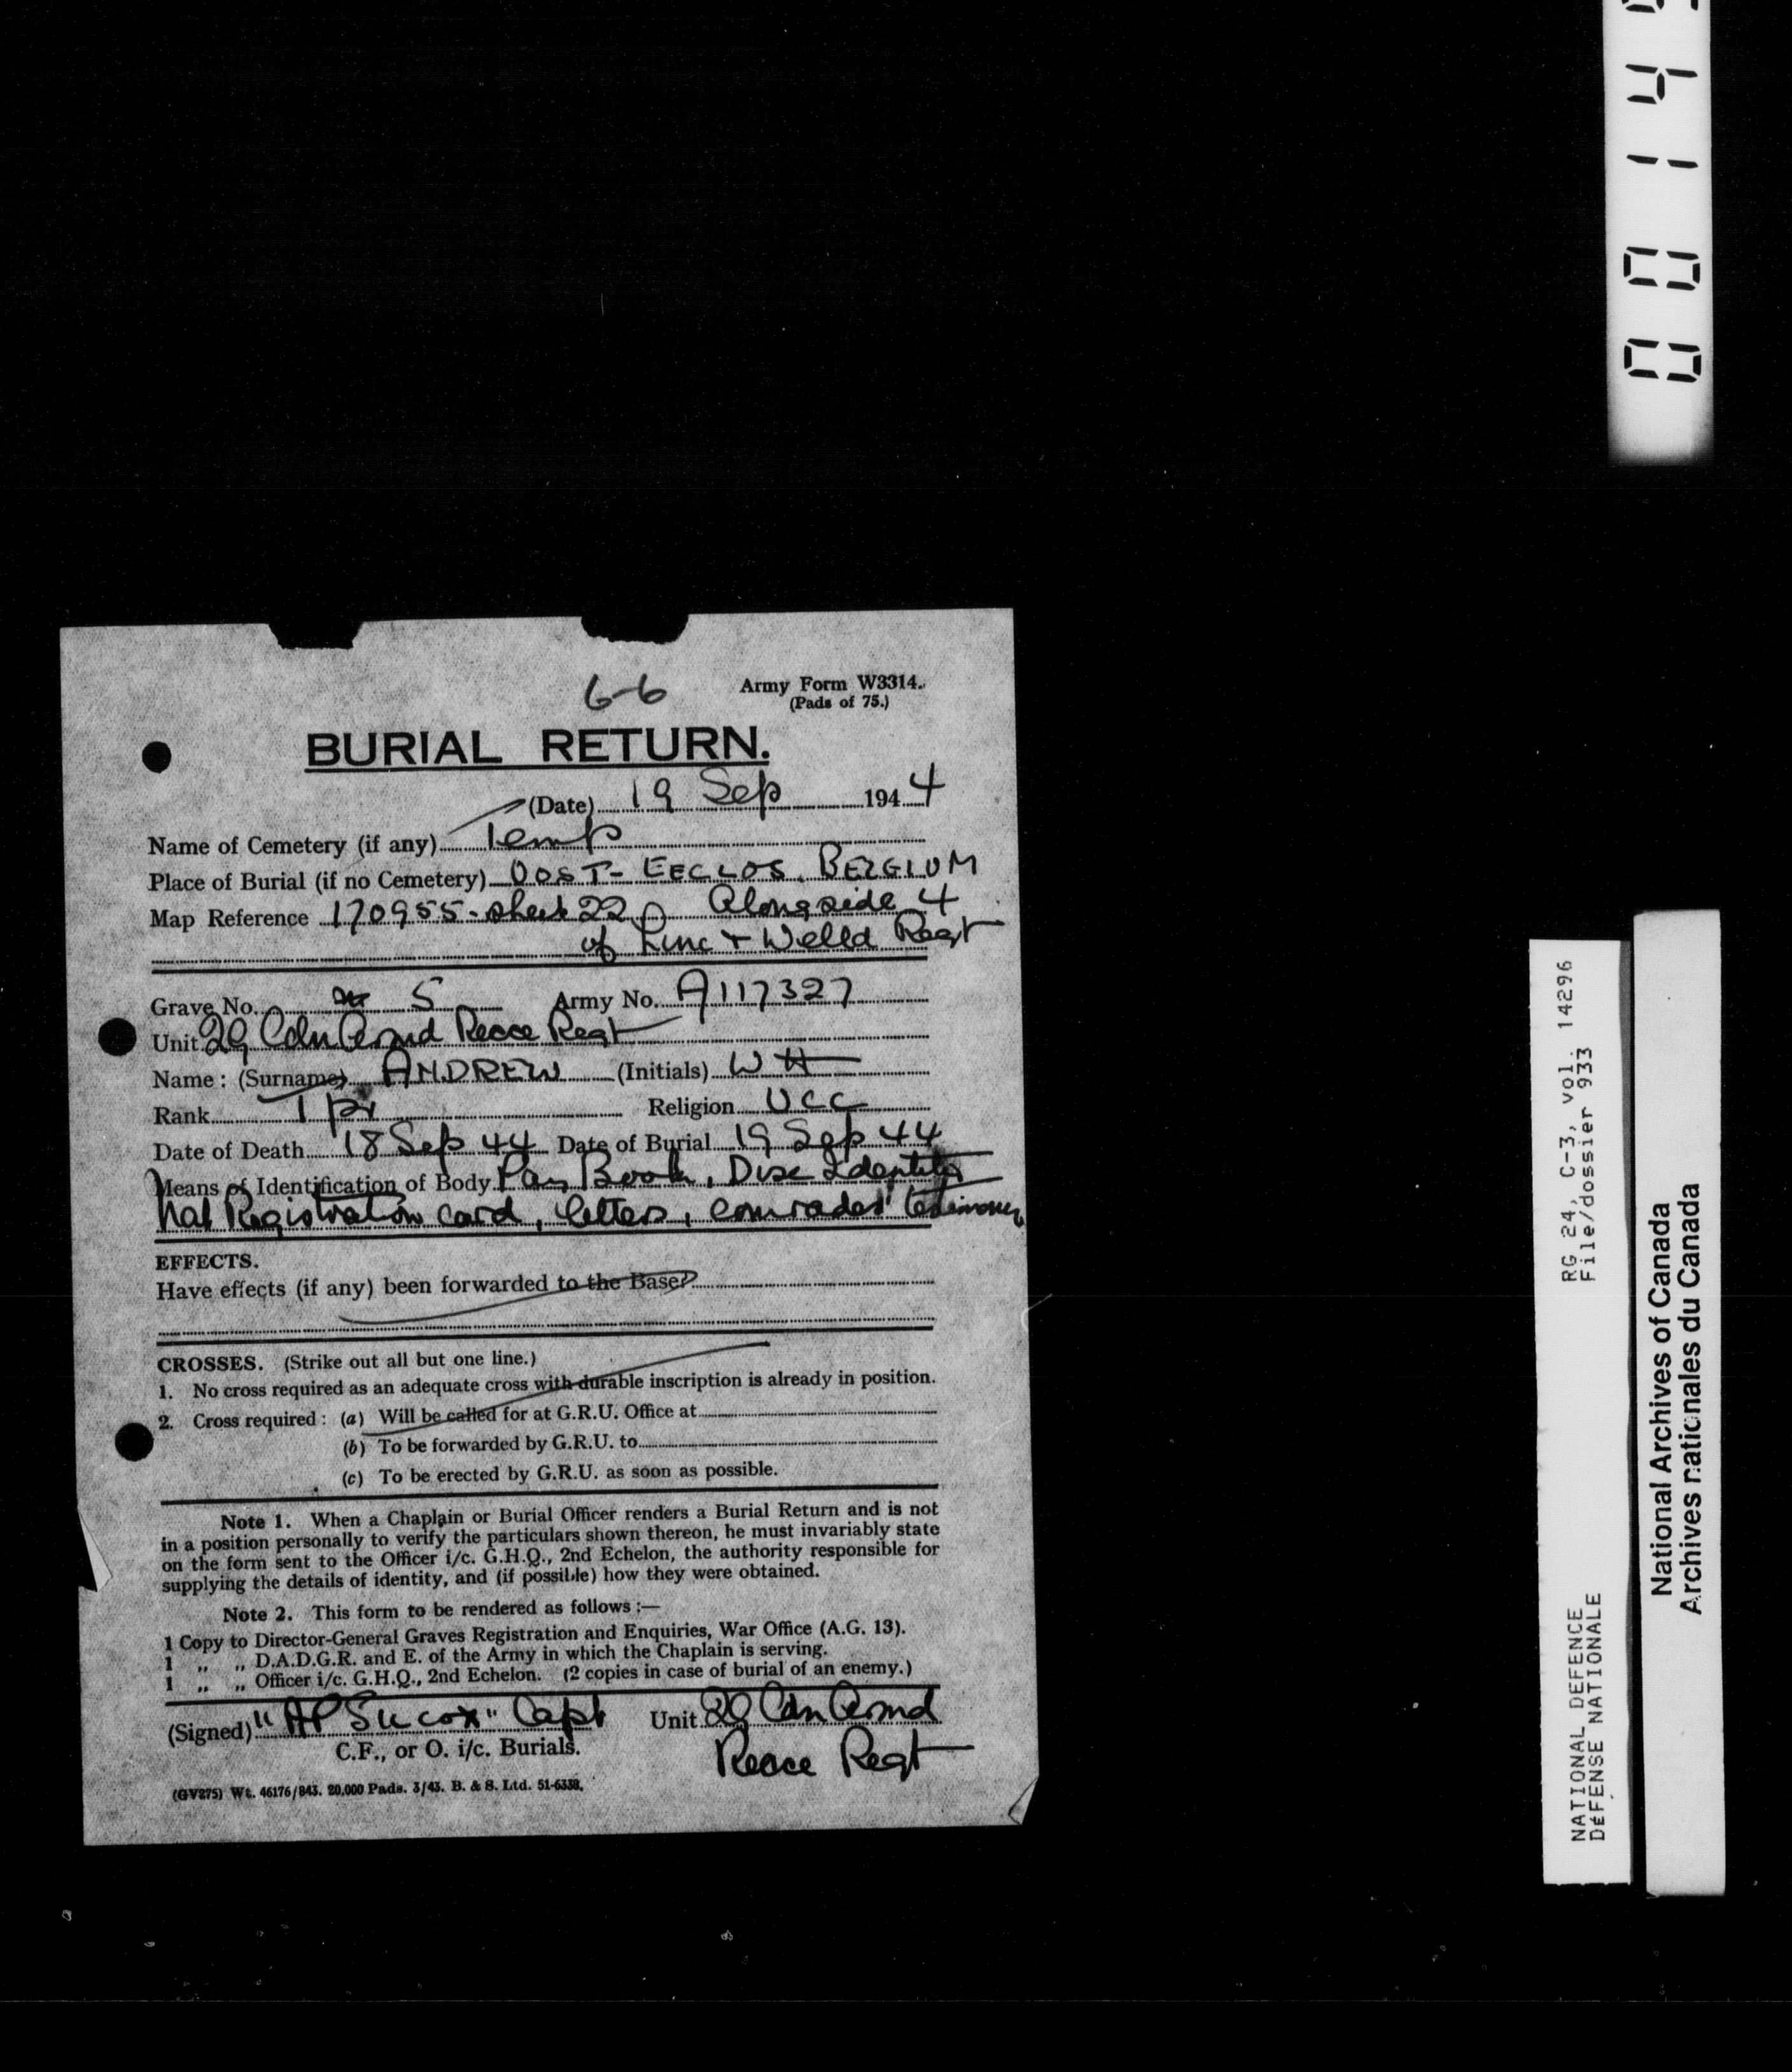 6-6
Army Form W3314.
(Pads of 75.)
BURIAL RETURN.
(Date) 19 Sep 1944
Name of Cemetery (if any) Temp
Place of Burial (if no Cemetery) OOST-EECLOS. BELGIUM
Map Reference 170955-sheet 22 Alongside 4
of Linc + Welld Regt
Grave No. 5 Army No. A117327
Unit 29 Cdn Armd Recce Regt
Name: (Surname) ANDREW (Initials) W H
Rank Tpr Religion UCC
Date of Death 18 Sep 44 Date of Burial 19 Sep 44
Means of Identification of Body Pay Book, Disc Identity
Nat Registration card, letters, comrades' testimony
EFFECTS.
Have effects (if any) been forwarded to the Base?
CROSSES. (Strike out all but one line.)
1. No cross required as an adequate cross with durable inscription is already in position.
2. Cross required: (a) Will be called for at G.R.U. Office at
(b) To be forwarded by G.R.U. to
(c) To be erected by G.R.U. as soon as possible.
Note 1. When a Chaplain or Burial Officer renders a Burial Return and is not
in a position personally to verify the particulars shown thereon, he must invariably state
on the form sent to the Officer i/c. G.H.Q., 2nd Echelon, the authority responsible for
supplying the details of identity, and (if possible) how they were obtained.
Note 2. This form to be rendered as follows:—
1 Copy to Director-General Graves Registration and Enquiries, War Office (A.G. 13).
1 „ „ D.A.D.G.R. and E. of the Army in which the Chaplain is serving.
1 „ „ Officer i/c. G.H.Q., 2nd Echelon. (2 copies in case of burial of an enemy.)
(Signed) "AP Silcox" Capt Unit 29 Cdn Armd
C.F., or O. i/c. Burials. Recce Regt
(GV275) Wt. 46176/843. 20,000 Pads. 3/43. B. & S. Ltd. 51-6338.
RG 24, C-3, vol. 14296
File/dossier 933
NATIONAL DEFENCE
DÉFENSE NATIONALE
National Archives of Canada
Archives nationales du Canada